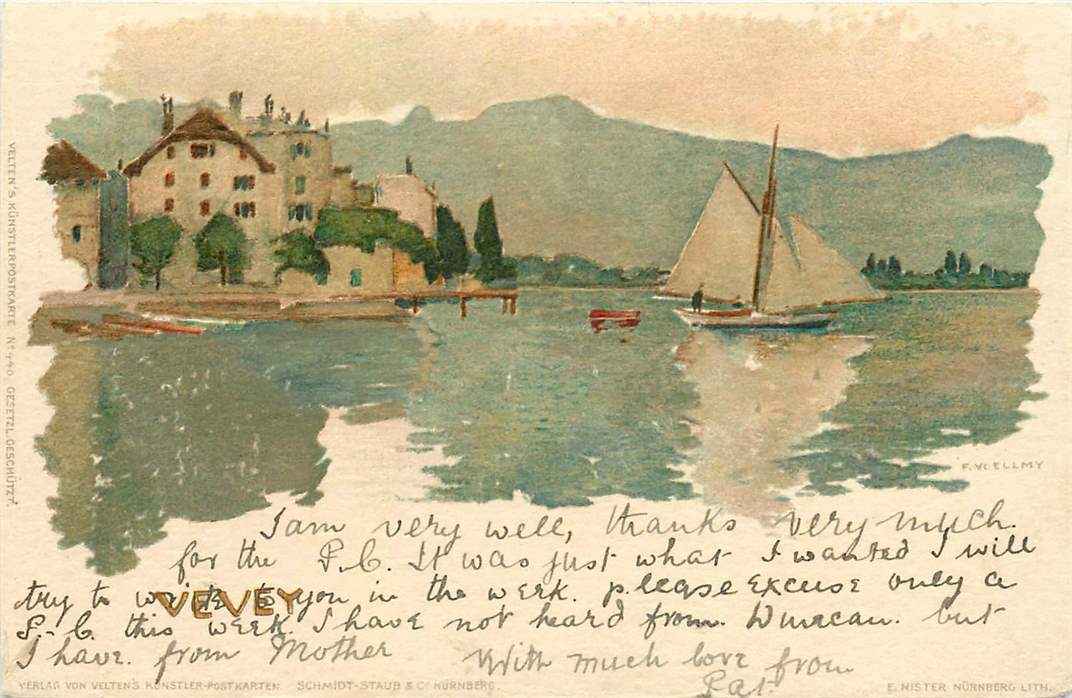 VELTEN'S KÜNSTLERPOSTKARTE Nº 440 GESETZL. GESCHÜTZT.
F. VOELLMY
I am very well, thanks very much.
for the P.C. It was just what I wanted I will
try to write to you in the week. please excuse only a
P.-C. this week. I have not heard from. but
I have. from Mother
With much love from
Pat.
VEVEY
VERLAG VON VELTEN'S KÜNSTLER-POSTKARTEN SCHMIDT-STAUB & Cº NÜRNBERG.
E. NISTER NÜRNBERG LITH.